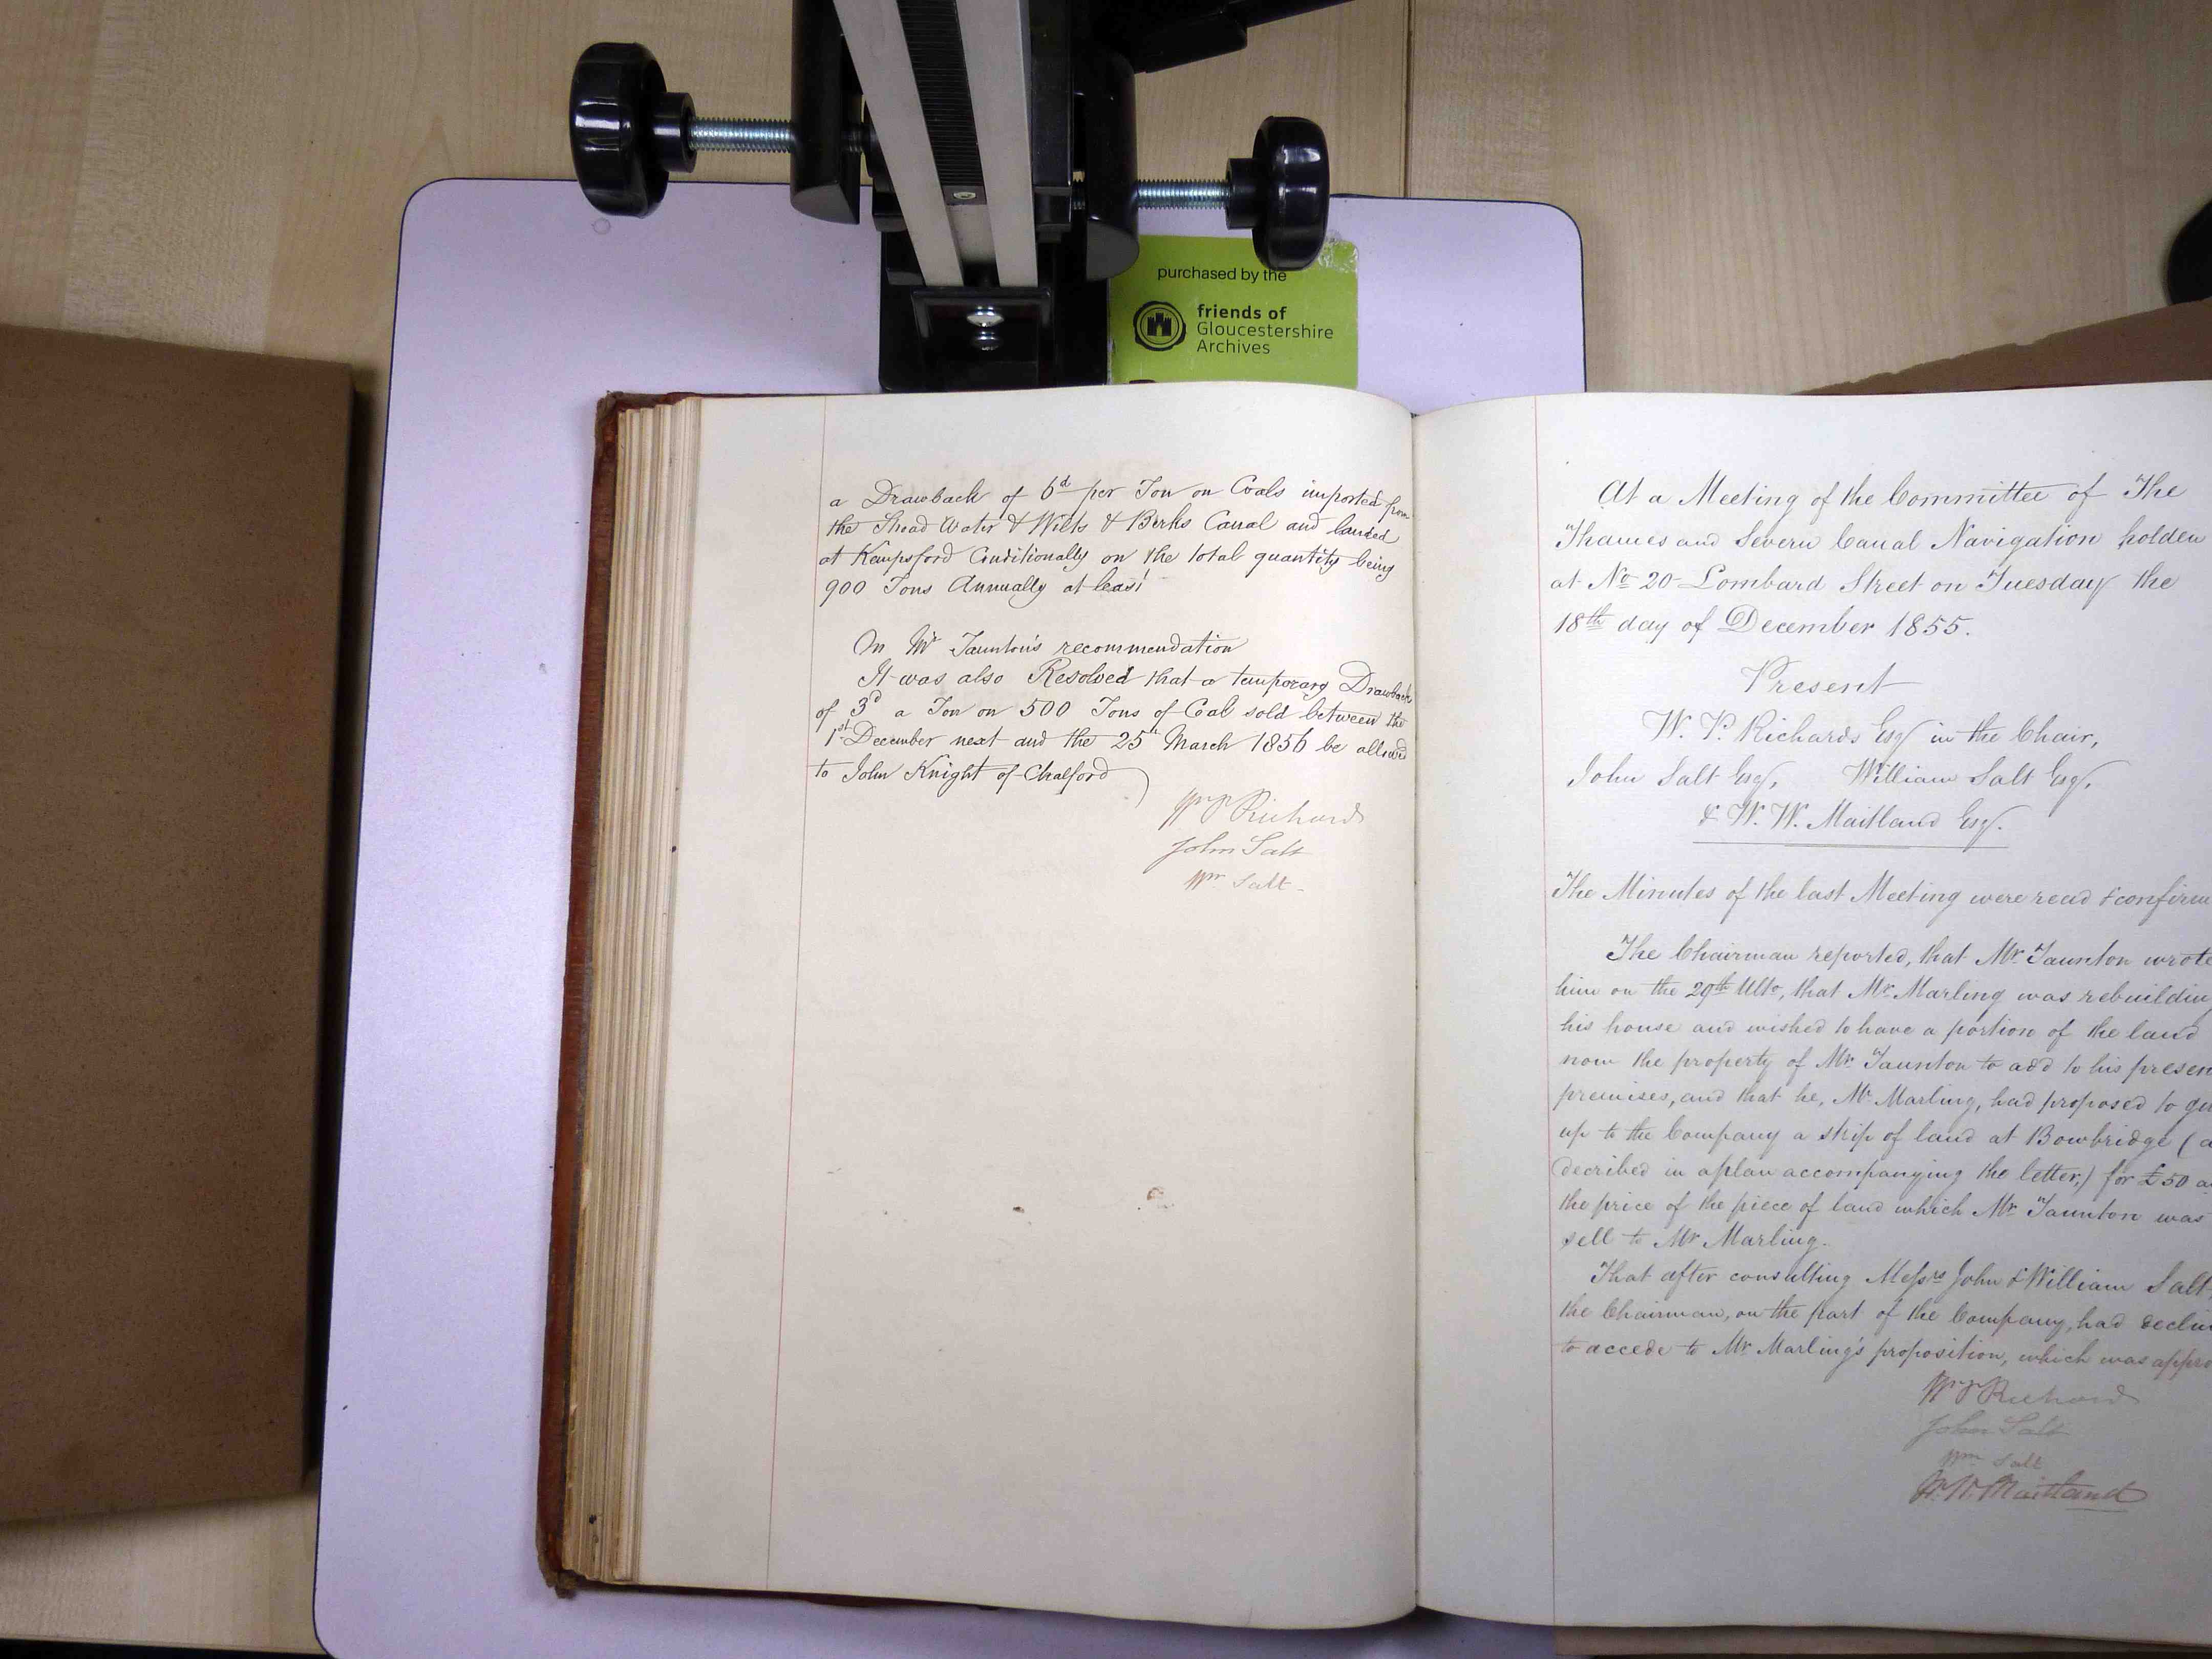 purchased by the
friends of
Gloucestershire
Archives
a Drawback of 6d per Ton on Coals imported from
the Stroud Water & Wilts & Berks Canal and landed
at Kempsford Conditionally on the total quantity being
900 Tons Annually at least
On Mr Taunton's recommendation
It was also Resolved that a temporary Drawback
of 3d a Ton on 500 Tons of Coal sold between the
1st December next and the 25th March 1856 be allowed
to John Knight of Chalford
Wm P Richards
John Salt
Wm Salt
At a Meeting of the Committee of The
Thames and Severn Canal Navigation holden
at No 20 Lombard Street on Tuesday the
18th day of December 1855.
Present
W. P. Richards Esq in the Chair,
John Salt Esq, William Salt Esq,
& W. W. Maitland Esq.
The Minutes of the last Meeting were read & confirm
The Chairman reported, that Mr Taunton wrote
him on the 29th Ulto, that Mr Marling was rebuilding
his house and wished to have a portion of the land
now the property of Mr Taunton to add to his presen
premises, and that he, Mr Marling, had proposed to giv
up to the Company a strip of land at Bowbridge (a
decribed in a plan accompanying the letter,) for £50 a
the price of the piece of land which Mr Taunton was
sell to Mr Marling.
That after consulting Messrs John & William Salt,
the Chairman, on the part of the Company, had declin
to accede to Mr Marling's proposition, which was appro
Wm P Richards
John Salt
Wm Salt
W. W. Maitland